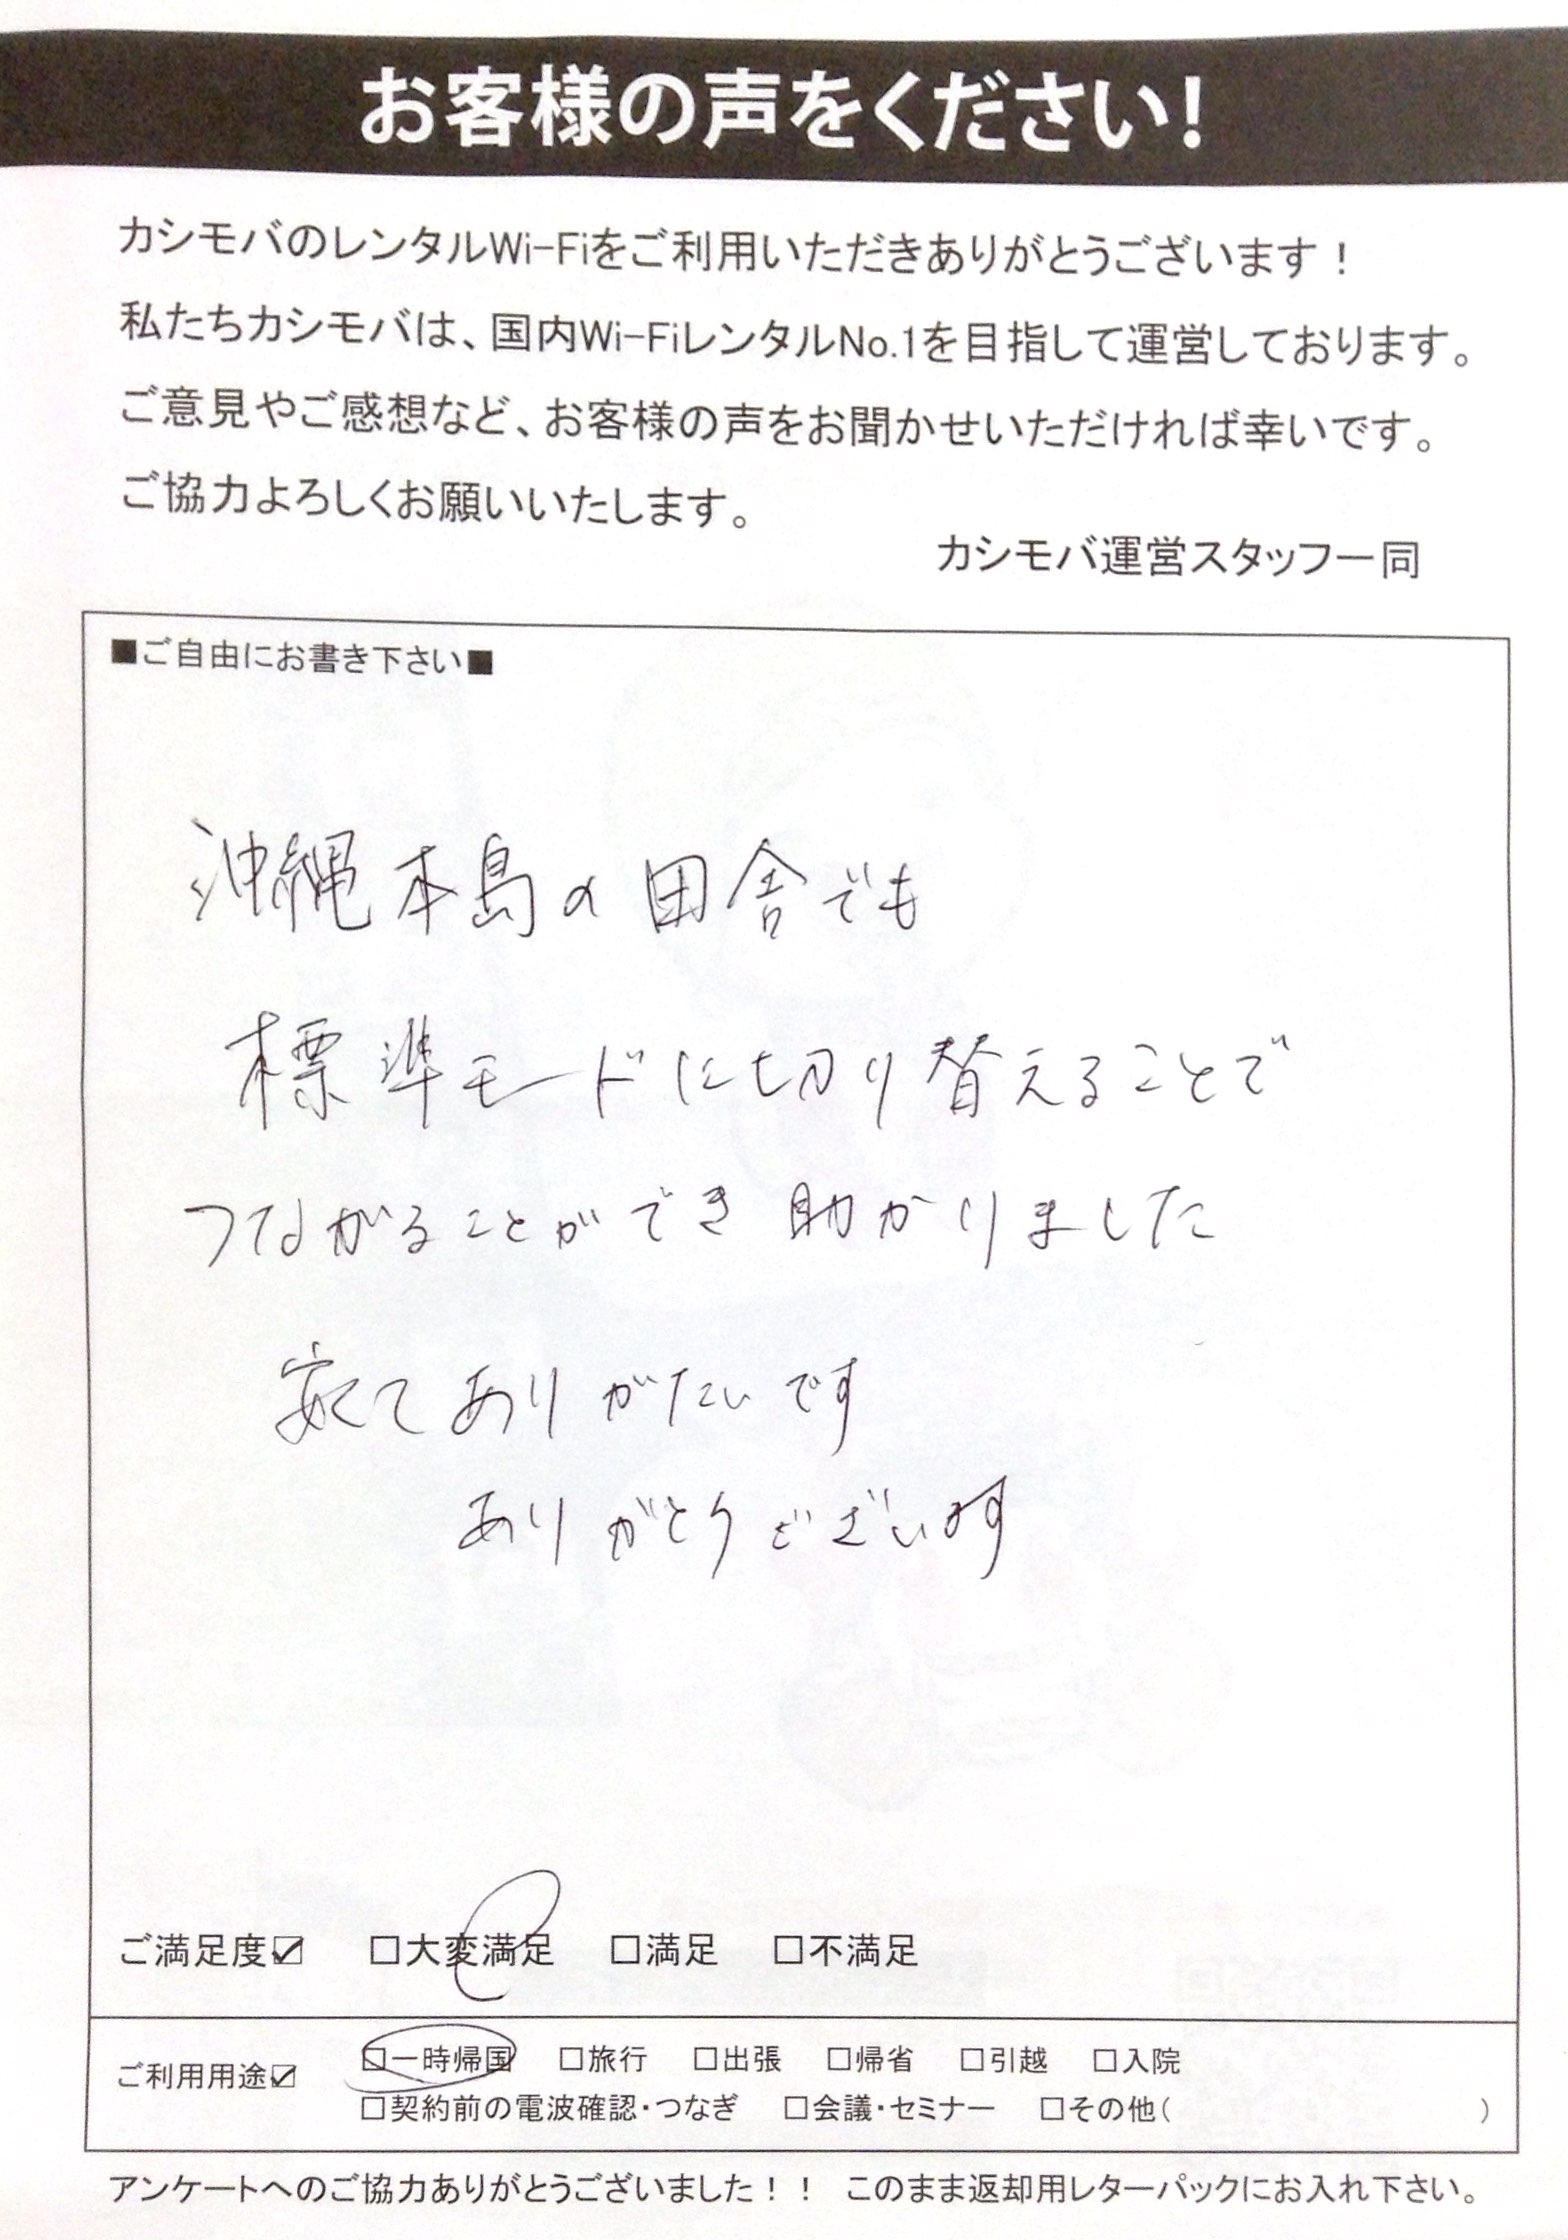 お客様の声をください!
カシモバのレンタルWi-Fiをご利用いただきありがとうございます！
私たちカシモバは、国内Wi-FiレンタルNo.1を目指して運営しております。
ご意見やご感想など、お客様の声をお聞かせいただければ幸いです。
ご協力よろしくお願いいたします。
カシモバ運営スタッフ一同
■ご自由にお書き下さい■
沖縄本島の田舎でも
標準モードに切り替えることで
つながることができ助かりました
安くてありがたいです
ありがとうございます
ご満足度☑ □大変満足 □満足 □不満足
ご利用用途☑ □一時帰国 □旅行 □出張 □帰省 □引越 □入院
□契約前の電波確認・つなぎ □会議・セミナー □その他( )
アンケートへのご協力ありがとうございました！！ このまま返却用レターパックにお入れ下さい。